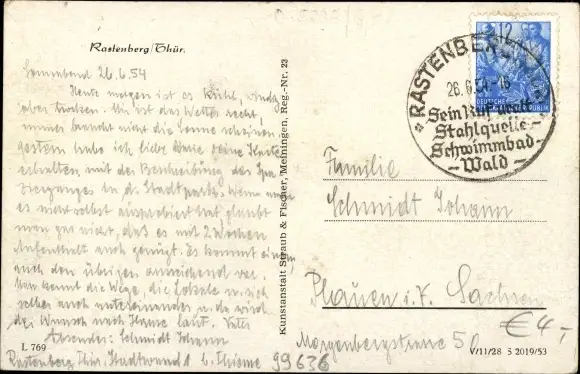 Rastenberg/Thür.
Sonnabend 26.6.54
Heute morgen ist es kühl, windig
aber trocken. Mir ist das Wetter recht,
immer braucht nicht die Sonne scheinen.
gestern habe ich liebe deine Karte
erhalten mit der Beschreibung des Spa-
zierganges in d. Stadtpark. Wenn man
es nicht selbst ausprobiert hat, glaubt
man gar nicht, daß es mit 2 Wochen
Aufenthalt auch genügt. Es kommt einem
auch den übrigen ausreichend vor.
Man kennt die Wege, die Lokale u. sich
selber auch untereinander u. da wird
der Wunsch nach Hause laut. Vater
Absender: Schmidt Johann
Rastenberg Thür. Stadtwand 1 b. Thieme
L 769
99636
Kunstanstalt Straub & Fischer, Meiningen, Reg.-Nr. 23
12
DEUTSCHE
RASTENBERG
26.6.54.-16
Sein Ruf
Stahlquelle-
Schwimmbad-
-Wald-
Familie
Schmidt Johann
Plauen i. V. Sachsen
Morgenbergstrasse 50
€4,-
V/11/28 S 2019/53